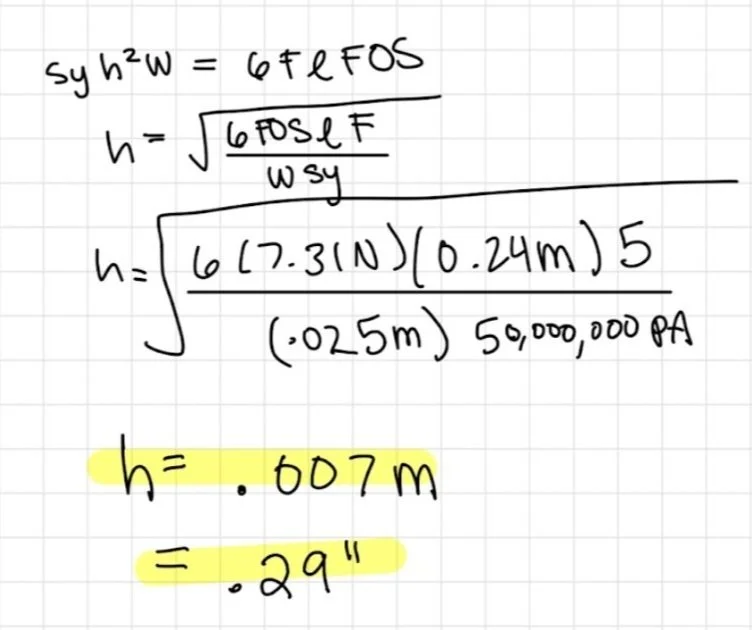 Sy h²w = 6FlFOS
h = √(6FOSlF / w Sy)
h = √(6 (7.31N)(0.24m) 5 / (.025m) 50,000,000 PA)
h = .007m
= .29"